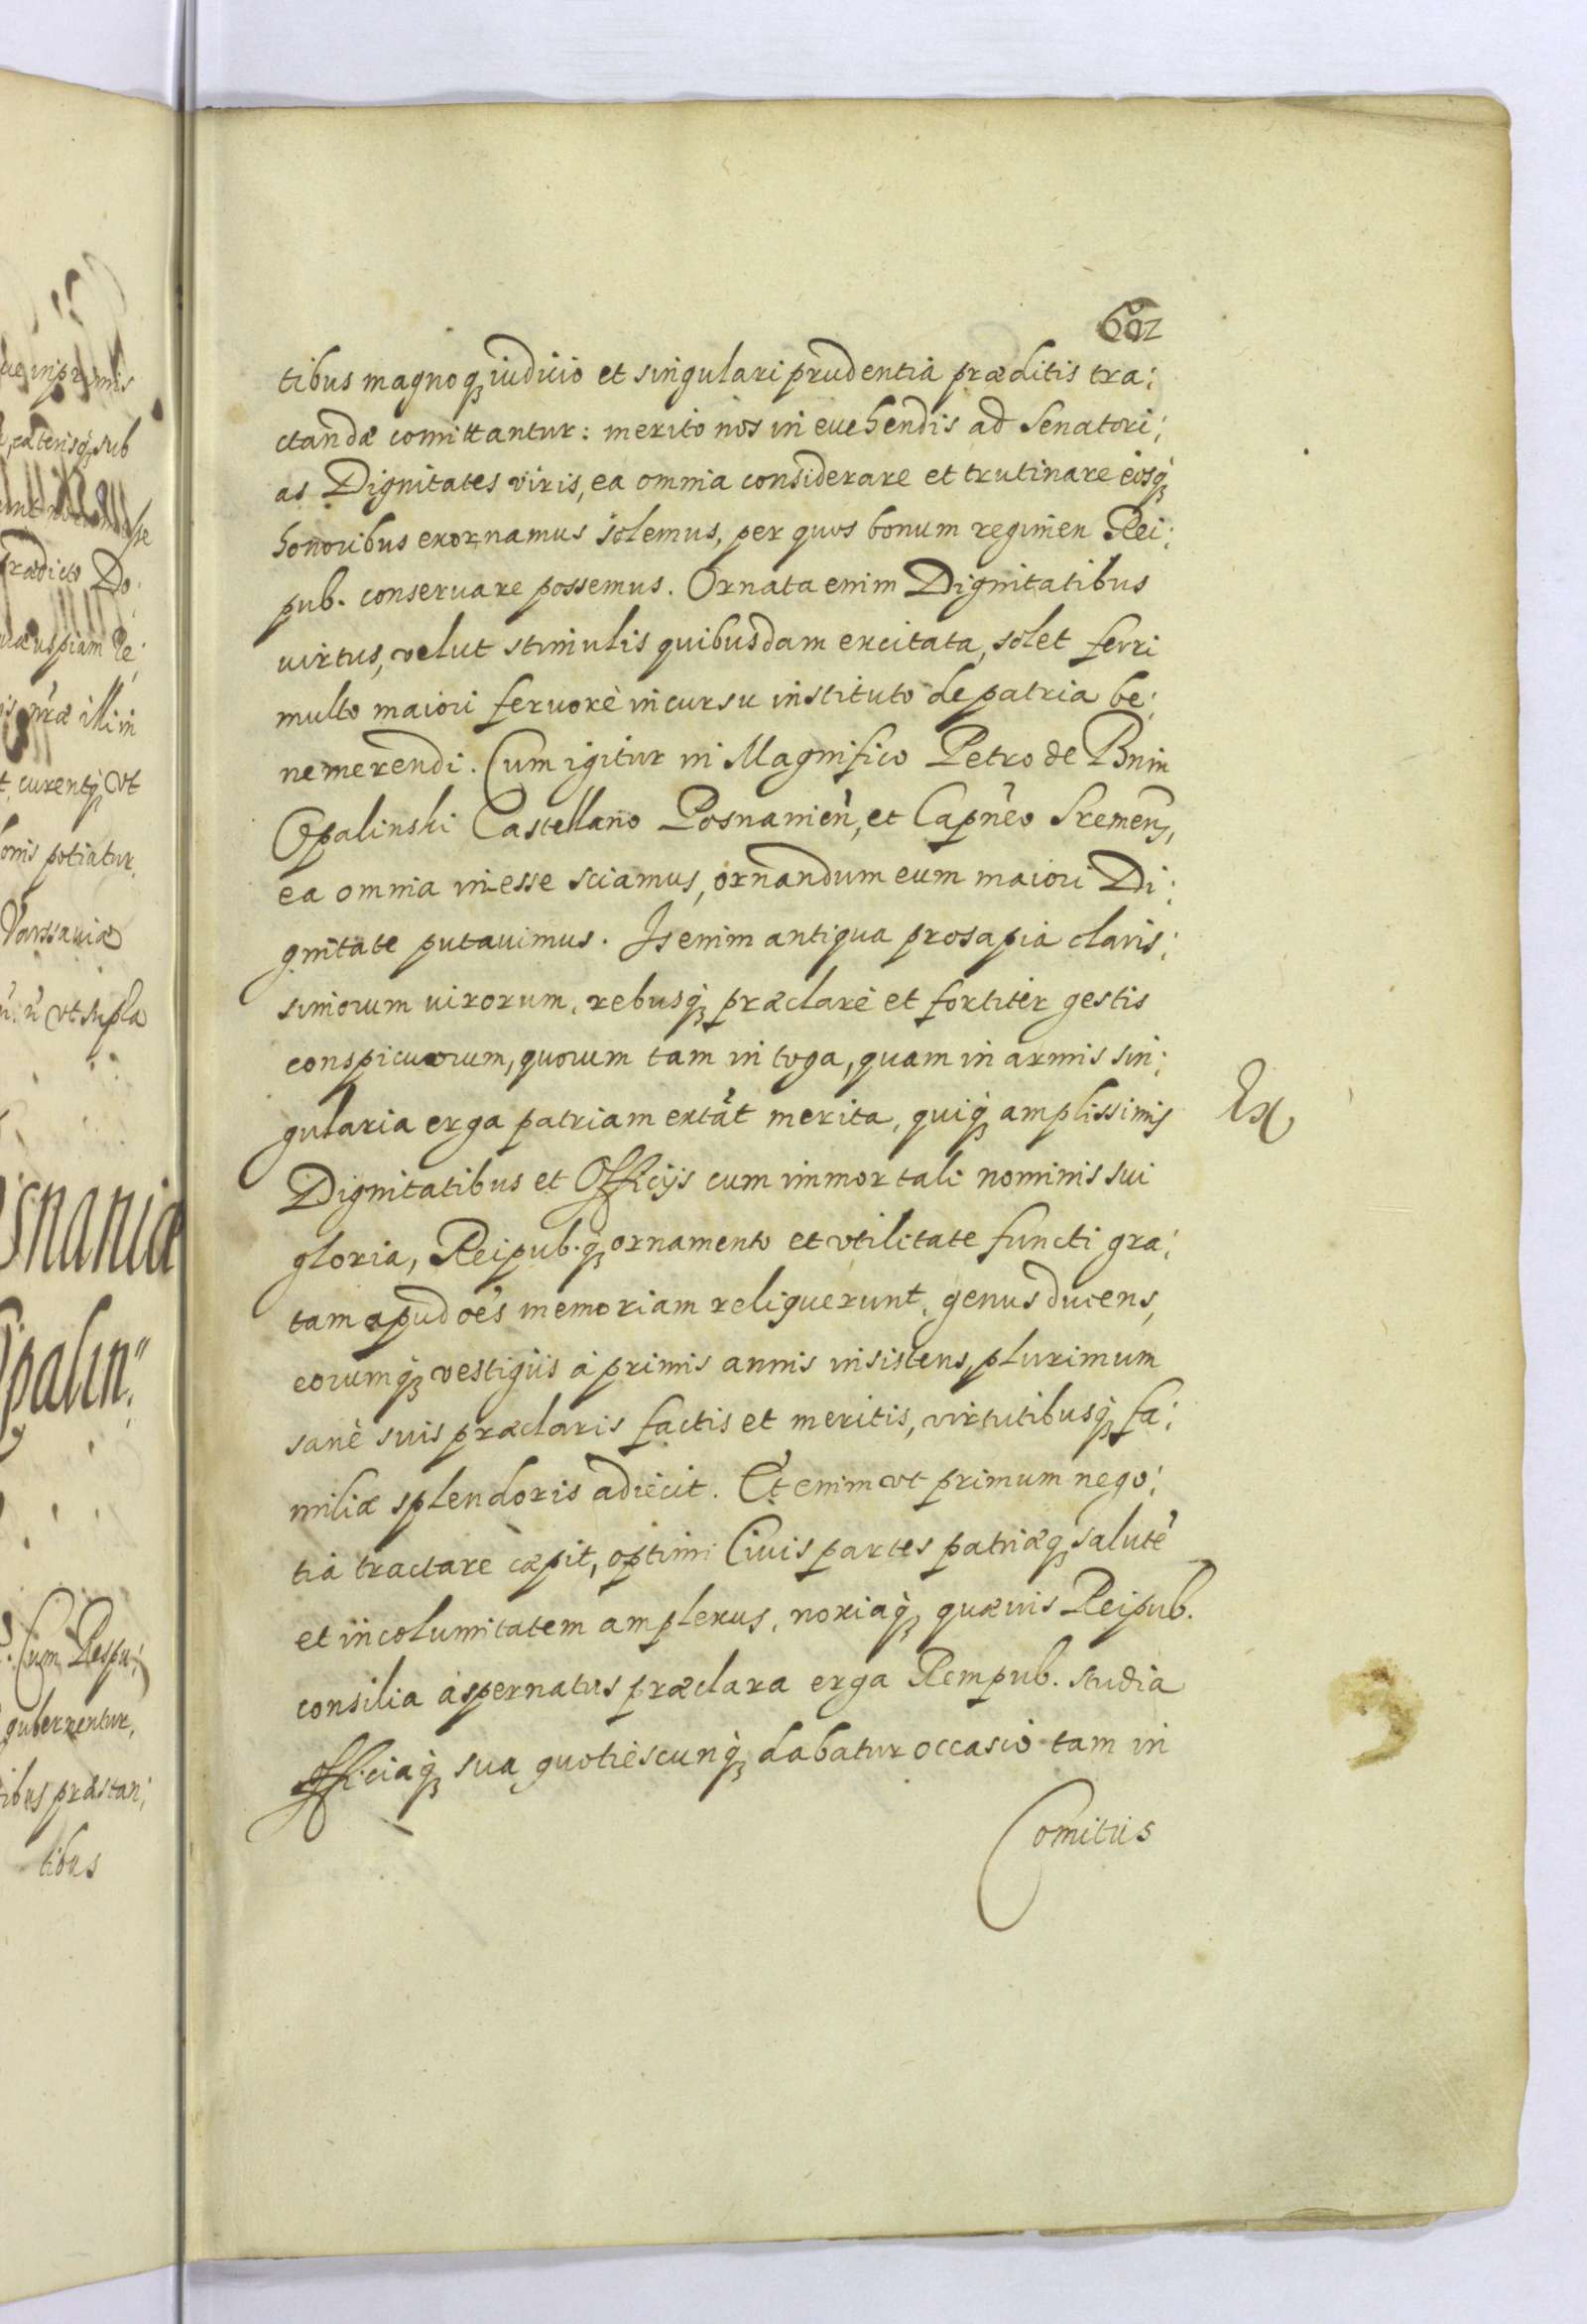 602
tibus magnoq₃ iudicio et singulari prudentia præditis tra:
ctandæ comittantur: merito nos in euehendis ad Senatori:
as Dignitates viris, ea omnia considerare et trutinare eosq₃
honoribus exornamus solemus, per quos bonum regimen Rei:
pub. conseruare possemus. Ornata enim Dignitatibus
uirtus, velut stimulis quibusdam excitata, solet ferri
multo maiori feruorè in cursu instituto de patria be:
nemerendi. Cum igitur in Magnifico Petro de Bnin
Opalinski Castellano Posnanien̄, et Capn̄eo Sremen̄,
ea omnia inesse sciamus, ornandum eum maiori Di:
gnitate putauimus. Is enim antiqua prosapia claris:
simorum uirorum, rebusq₃ præclarè et fortitèr gestis
conspicuorum, quorum tam in toga, quam in armis sin:
gularia erga patriam extāt merita, quiq₃ amplissimis
Ex
Dignitatibus et Officijs cum immortali nominis sui
gloria, Reipub.q₃ ornamento et vtilitate functi gra:
tam apud oēs memoriam reliquerunt, genus ducens,
eorumq₃ vestigiis à primis annis insistens, plurimum
sanè suis præclaris factis et meritis, virtutibusq₃ fa:
miliæ splendoris adiecit. Etenim vt primum nego:
tia tractarè cæpit, optimi Ciuis partes patriæq₃ salutē
et incolumitatem amplexus, noxiaq₃ quæuis Reipub.
consilia aspernatus præclara erga Rempub. studia
officiaq₃ sua quotièscunq₃ dabatur occasio tam in
Comitiis